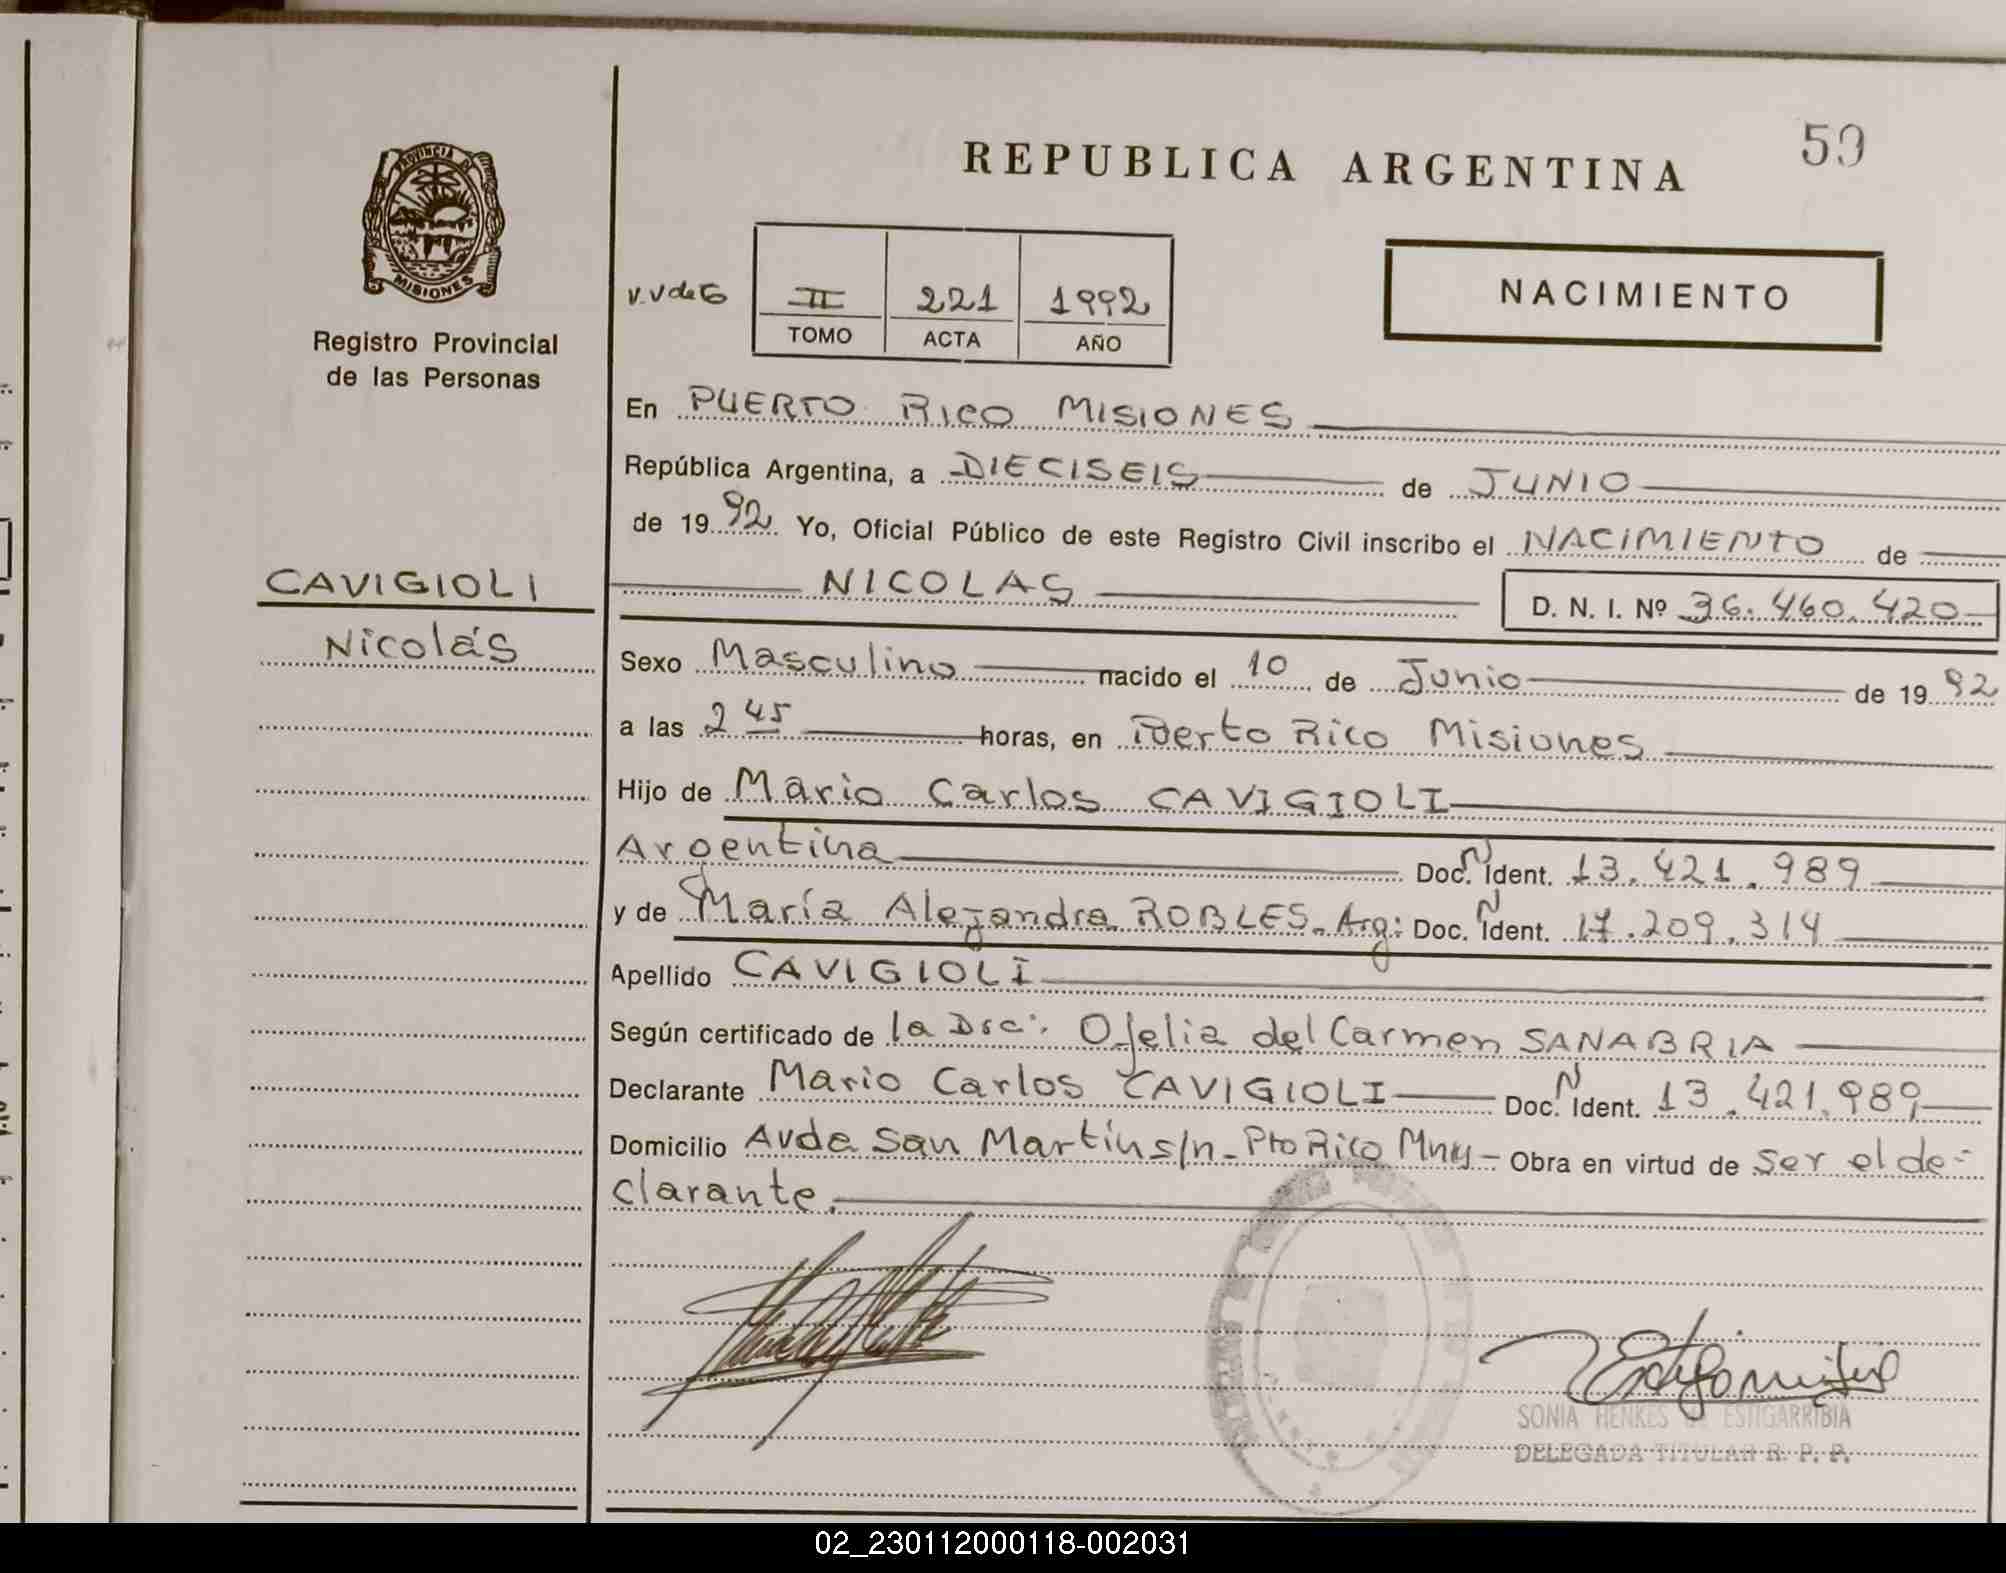 59
REPUBLICA ARGENTINA
PROVINCIA DE
MISIONES
Registro Provincial
de las Personas
NACIMIENTO
V.V de G
II 221 1992
TOMO ACTA AÑO
En PUERTO RICO MISIONES
República Argentina, a DIECISEIS de JUNIO
de 1992 Yo, Oficial Público de este Registro Civil inscribo el NACIMIENTO de
NICOLAS D. N. I. Nº 36.460.420
CAVIGIOLI
Nicolás
Sexo Masculino nacido el 10 de Junio de 1992
a las 2 45 horas, en Puerto Rico Misiones
Hijo de Mario Carlos CAVIGIOLI
Argentina Doc. N Ident. 13.421.989
y de María Alejandra ROBLES. Arg: Doc. N Ident. 17.209.314
Apellido CAVIGIOLI
Según certificado de la Dra: Ofelia del Carmen SANABRIA
Declarante Mario Carlos CAVIGIOLI Doc. N Ident. 13.421.989
Domicilio Avda San Martín s/n - Pto Rico Mnes - Obra en virtud de ser el de-
clarante.
SONIA HENKES de ESTIGARRIBIA
DELEGADA TITULAR R. P. P.
02_230112000118-002031